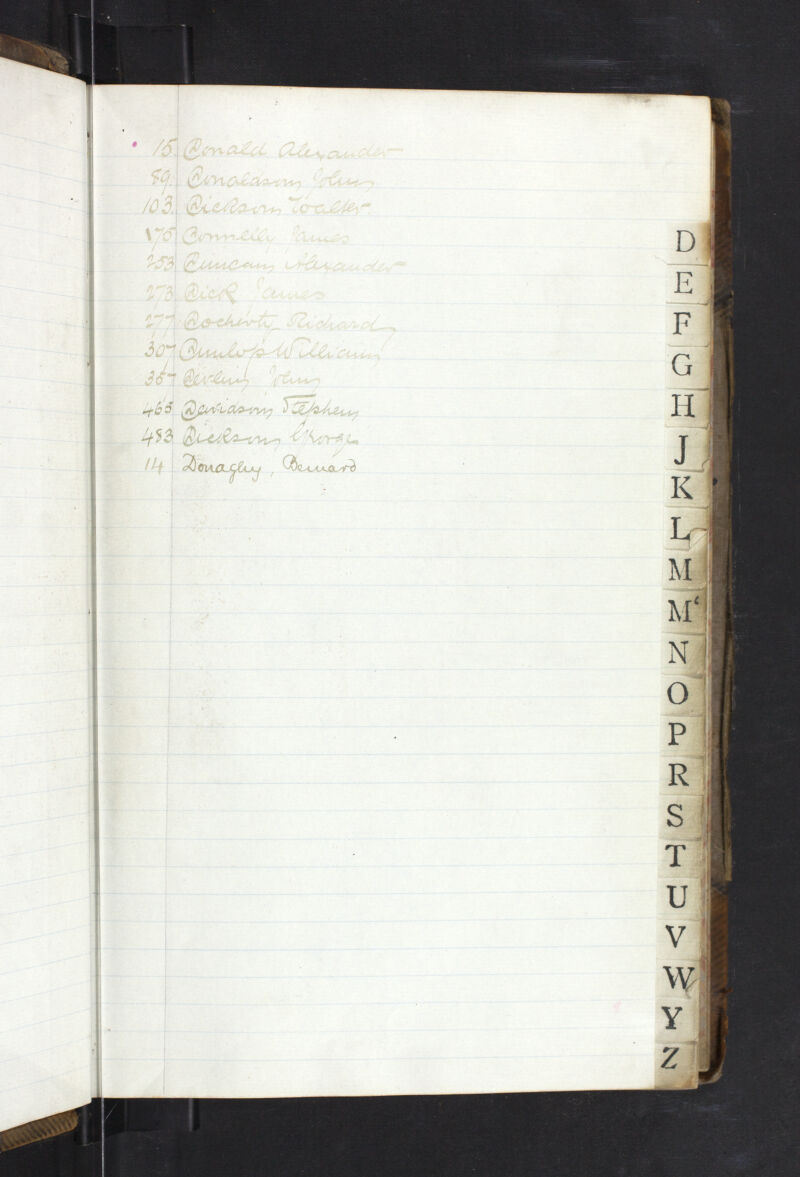 15 Donald Alexander
89. Donaldson John
103. Dickson Walter
175 Donnelly James
253 Duncan Alexander
273 Dick James
277 Docherty Richard
307 Dunlop William
357 Devlin John
465 Davidson Stephen
483 Dickson George
14 Donaghy, Bernard
D
E
F
G
H
J
K
L
M
Mᶜ
N
O
P
R
S
T
U
V
W
Y
Z